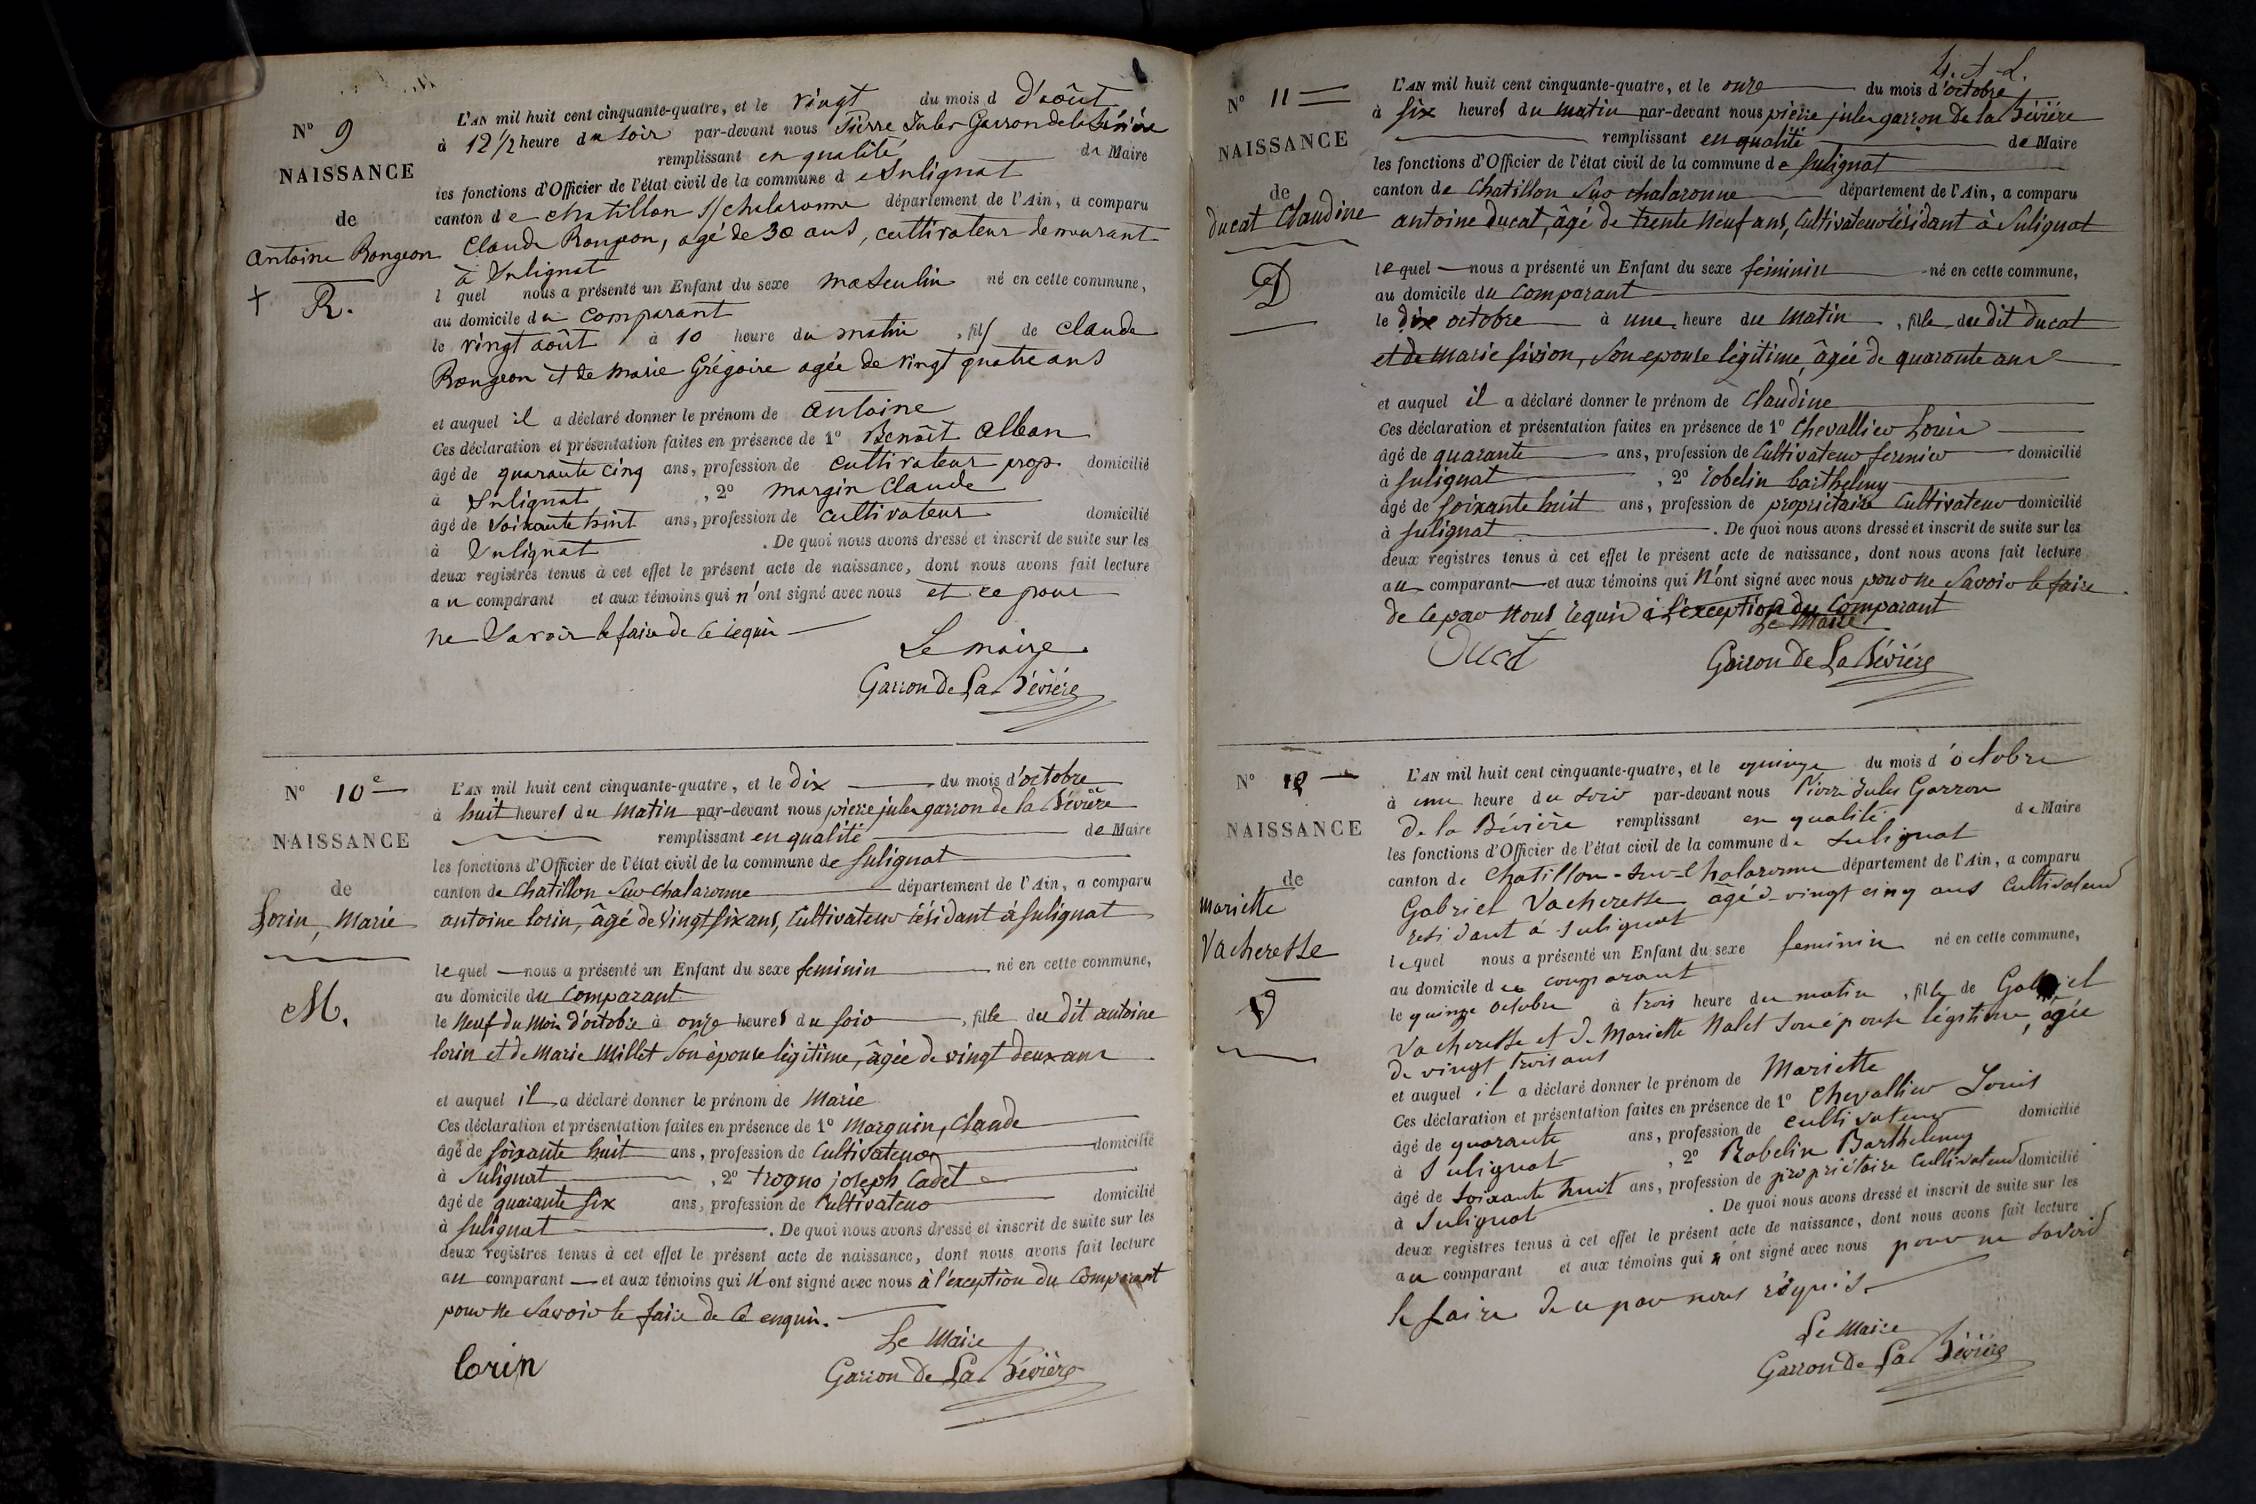 N° 9
NAISSANCE
de
Antoine Rongeon
R.
L'AN mil huit cent cinquante-quatre, et le vingt du mois d d'août
à 12 1/2 heure du soir par-devant nous Pierre Jules Garron de la Bévière
remplissant en qualité de Maire
les fonctions d'Officier de l'état civil de la commune d e Sulignat
canton d e chatillon s/ chalaronne département de l'Ain, a comparu
Claude Rongeon, agé de 30 ans, cultivateur demeurant
à Sulignat
l quel nous a présenté un Enfant du sexe masculin né en cette commune,
au domicile du comparant
le vingt août à 10 heure du matin, fils de Claude
Rongeon et de marie Grégoire agée de vingt quatre ans
et auquel il a déclaré donner le prénom de Antoine
Ces déclaration et présentation faites en présence de 1° Benoît Alban
âgé de quarante cinq ans, profession de cultivateur prop. domicilié
à Sulignat, 2° margin Claude
âgé de soixante huit ans, profession de cultivateur domicilié
à Sulignat. De quoi nous avons dressé et inscrit de suite sur les
deux registres tenus à cet effet le présent acte de naissance, dont nous avons fait lecture
au comparant et aux témoins qui n'ont signé avec nous et ce pour
ne savoir le faire de ce requis
Le maire
Garron de La Bévière
N° 10e
NAISSANCE
de
Lorin, Marie
M.
L'AN mil huit cent cinquante-quatre, et le dix du mois d'octobre
à huit heures du matin par-devant nous pierre jules garron de la Bévière
remplissant en qualité de Maire
les fonctions d'Officier de l'état civil de la commune de Sulignat
canton de Chatillon sur chalaronne département de l'Ain, a comparu
antoine lorin, âgé de vingt six ans, cultivateur résidant à Sulignat
lequel nous a présenté un Enfant du sexe feminin né en cette commune,
au domicile du comparant
le neuf du mois d'octobre à onze heures du soir, fille du dit antoine
lorin et de Marie Millet son épouse légitime, âgée de vingt deux ans
et auquel il a déclaré donner le prénom de Marie
Ces déclaration et présentation faites en présence de 1° Marguin, Claude
âgé de soixante huit ans, profession de Cultivateur domicilié
à Sulignat, 2° trogno joseph Cadet
âgé de quarante six ans, profession de Cultivateur domicilié
à Sulignat. De quoi nous avons dressé et inscrit de suite sur les
deux registres tenus à cet effet le présent acte de naissance, dont nous avons fait lecture
au comparant et aux témoins qui n'ont signé avec nous à l'exception du Comparant
pour ne savoir le faire de ce enquis.
Le Maire
lorin
Garron de La Bévière
N° 11
NAISSANCE
de
ducat Claudine
D
L'AN mil huit cent cinquante-quatre, et le onze du mois d'octobre
à six heures du matin par-devant nous pierre jules garron de la Bévière
remplissant en qualité de Maire
les fonctions d'Officier de l'état civil de la commune de Sulignat
canton de Chatillon sur chalaronne département de l'Ain, a comparu
antoine ducat, âgé de trente neuf ans, Cultivateur résidant à Sulignat
lequel nous a présenté un Enfant du sexe féminin né en cette commune,
au domicile du comparant
le dix octobre à une heure du matin, fille du dit ducat
et de marie sivion, son epouse légitime, âgée de quarante ans
et auquel il a déclaré donner le prénom de Claudine
Ces déclaration et présentation faites en présence de 1° Chevallier Louis
âgé de quarante ans, profession de Cultivateur fermier domicilié
à Sulignat, 2° robelin barthelemy
âgé de soixante huit ans, profession de propriétaire Cultivateur domicilié
à Sulignat. De quoi nous avons dressé et inscrit de suite sur les
deux registres tenus à cet effet le présent acte de naissance, dont nous avons fait lecture
au comparant et aux témoins qui n'ont signé avec nous pour ne savoir le faire
de ce par nous requis à l'exception du Comparant
Le Maire
Ducat
Garron de La Bévière
N° 12
NAISSANCE
de
mariette
Vacheresse
V
L'AN mil huit cent cinquante-quatre, et le quinze du mois d'octobre
à une heure du soir par-devant nous Pierre Jules Garron
de la Bévière remplissant en qualité de Maire
les fonctions d'Officier de l'état civil de la commune de Sulignat
canton de Chatillon-sur-Chalaronne département de l'Ain, a comparu
Gabriel Vacheresse âgé de vingt cinq ans Cultivateur
residant à Sulignat
lequel nous a présenté un Enfant du sexe feminin né en cette commune,
au domicile du comparant
le quinze octobre à trois heure du matin, fille de Gabriel
Vacheresse et de Mariette Nalet son épouse légitime, âgée
de vingt trois ans
et auquel il a déclaré donner le prénom de Mariette
Ces déclaration et présentation faites en présence de 1° Chevallier Louis
âgé de quarante ans, profession de cultivateur domicilié
à Sulignat, 2° Robelin Barthelemy
âgé de soixante huit ans, profession de propriétaire Cultivateur domicilié
à Sulignat. De quoi nous avons dressé et inscrit de suite sur les
deux registres tenus à cet effet le présent acte de naissance, dont nous avons fait lecture
au comparant et aux témoins qui n'ont signé avec nous pour ne savoir
le faire de ce par nous réquis.
Le Maire
Garron de La Bévière